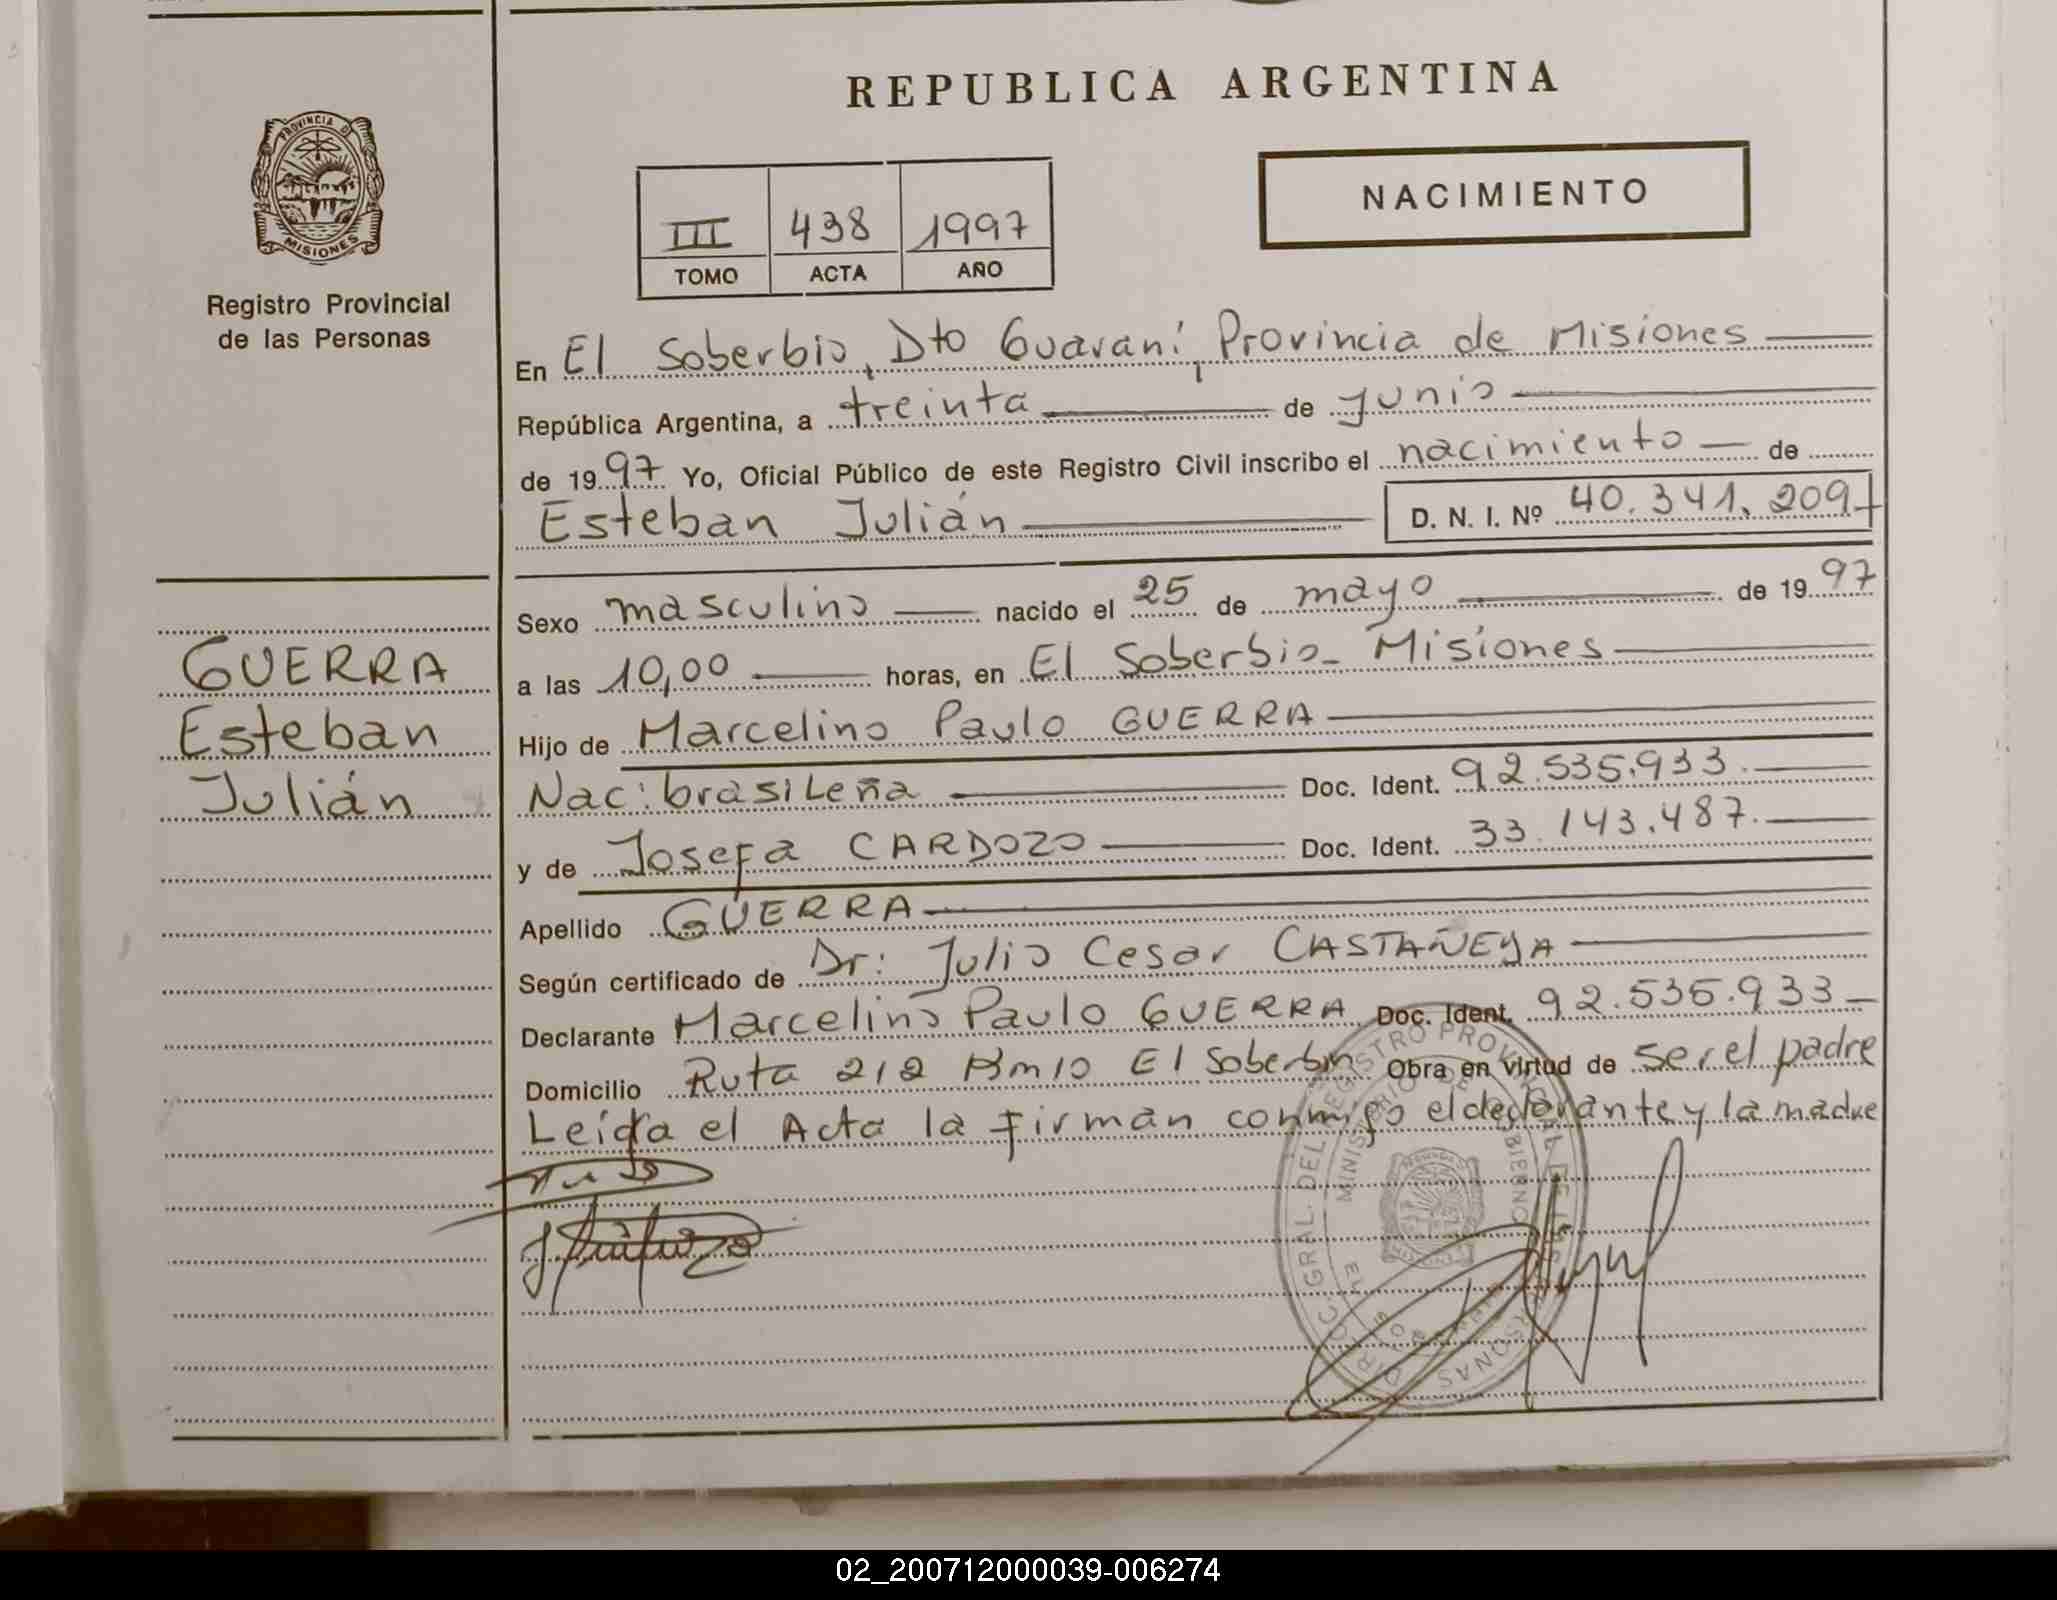 REPUBLICA ARGENTINA
PROVINCIA D
MISIONES
Registro Provincial
de las Personas
III 438 1997
TOMO ACTA AÑO
NACIMIENTO
En El Soberbio, Dto Guaraní, Provincia de Misiones
República Argentina, a treinta de junio
de 1997 Yo, Oficial Público de este Registro Civil inscribo el nacimiento de
Esteban Julián D. N. I. Nº 40.341.209
Sexo masculino nacido el 25 de mayo de 1997
a las 10,00 horas, en El Soberbio - Misiones
Hijo de Marcelino Paulo GUERRA
Nac: brasileña Doc. Ident. 92.535.933.
y de Josefa CARDOZO Doc. Ident. 33.143.487.
Apellido GUERRA
Según certificado de Dr: Julio Cesar CASTAÑEYA
Declarante Marcelino Paulo GUERRA Doc. Ident. 92.535.933
Domicilio Ruta 212 Km 10 El Soberbio Obra en virtud de ser el padre
Leída el Acta la firman conmigo el declarante y la madre
GUERRA
Esteban
Julián
DIRECC. GRAL. DEL REGISTRO PROVINCIAL DE LAS PERSONAS
MINISTERIO DE GOBIERNO
02_200712000039-006274